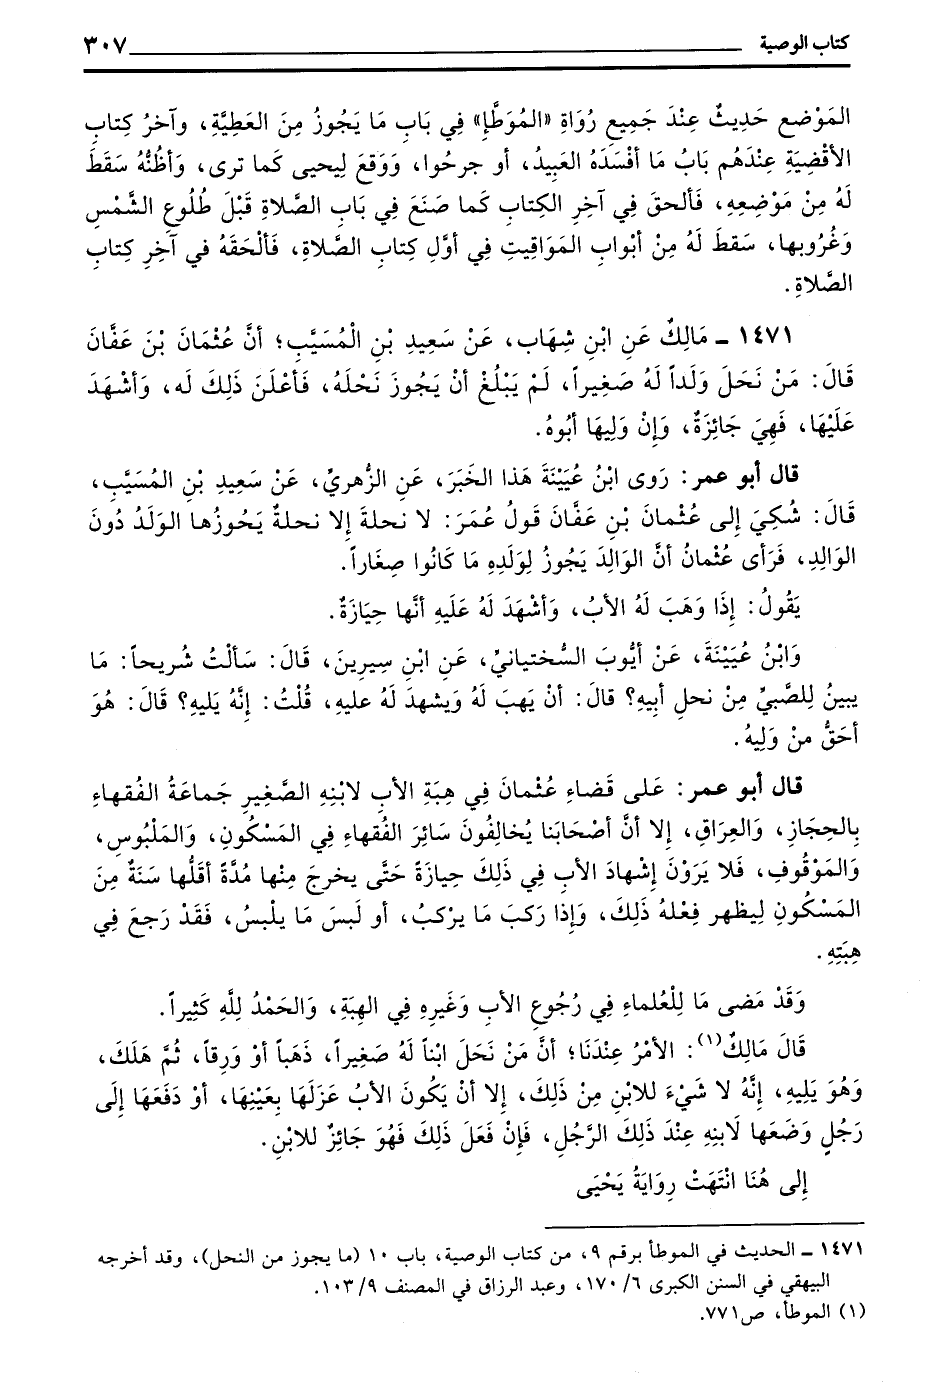 كتاب الوصية ٣٠٧
المَوْضع حَدِيثٌ عِنْدَ جَمِيعِ رُوَاةِ «المُوَطَّإِ» فِي بَابِ مَا يَجُوزُ مِنَ العَطِيَّةِ، وآخرُ كِتابِ
الأقْضِيَةِ عِنْدَهُم بَابُ مَا أفْسَدَهُ العَبِيدُ، أو جرحُوا، وَوَقعَ لِيحيى كَما ترى، وَأظُنُّهُ سَقَطَ
لَهُ مِنْ مَوْضِعِهِ، فَألحقَ فِي آخِرِ الكِتابِ كَما صَنَعَ فِي بَابِ الصَّلاةِ قَبْلَ طُلُوعِ الشَّمْسِ
وَغُرُوبها، سَقطَ لَهُ مِنْ أبْوابِ المَوَاقِيتِ فِي أوَّلِ كِتابِ الصَّلاةِ، فَألْحَقَهُ في آخِرِ كِتابِ
الصَّلاةِ.
١٤٧١ ـ مَالِكٌ عَنِ ابْنِ شِهَاب، عَنْ سَعِيدِ بْنِ الْمُسَيَّبِ؛ أنَّ عُثْمَانَ بْنَ عَفَّانَ
قَالَ: مَنْ نَحَلَ وَلَداً لَهُ صَغِيراً، لَمْ يَبْلُغْ أنْ يَجُوزَ نَحْلَهُ، فَأعْلَنَ ذَلِكَ لَه، وَأشْهَدَ
عَلَيْهَا، فَهِيَ جَائِزَةٌ، وَإنْ وَلِيهَا أبُوهُ.
قال أبو عمر: رَوى ابْنُ عُيَيْنَةَ هَذا الخَبَرَ، عَنِ الزُّهريِّ، عَنْ سَعِيدِ بْنِ المُسَيَّبِ،
قَالَ: شُكِيَ إِلى عُثْمانَ بْنِ عَفَّانَ قَولُ عُمَرَ: لا نحلةَ إلا نحلةٌ يَحُوزُها الوَلَدُ دُونَ
الوَالِدِ، فَرَأى عُثْمانُ أنَّ الوَالِدَ يَجُوزُ لِوَلَدِهِ مَا كَانُوا صِغَاراً.
يَقُولُ: إِذَا وَهَبَ لَهُ الأبُ، وَأشْهَدَ لَهُ عَلَيهِ أنَّها حِيَازَةٌ.
وَابْنُ عُيَيْنَةَ، عَنْ أيُّوبَ السُّختيانيِّ، عَنِ ابْنِ سِيرِينَ، قَالَ: سَألْتُ شُريحاً: مَا
يبينُ لِلصَّبيِّ مِنْ نحلِ أبِيهِ؟ قالَ: أنْ يَهبَ لَهُ وَيشهدَ لَهُ عليهِ، قُلْتُ: إنَّهُ يَليهِ؟ قَالَ: هُوَ
أحَقُّ منْ وَلِيهُ.
قال أبو عمر: عَلى قَضاءِ عُثْمانَ فِي هِبَةِ الأبِ لابْنِهِ الصَّغِيرِ جَماعَةُ الفُقهاءِ
بِالحِجَازِ، وَالعِرَاقِ، إلا أنَّ أصْحَابَنا يُخالِفُونَ سَائِرَ الفُقهاءِ فِي المَسْكُونِ، وَالمَلْبُوسِ،
وَالمَوْقُوفِ، فَلا يَرَوْنَ إشْهادَ الأبِ فِي ذَلِكَ حِيازَةً حَتَّى يخرجَ مِنْها مُدَّةً أقَلُّها سَنَةٌ مِنَ
المَسْكُونِ لِيظهر فِعْلهُ ذَلِكَ، وَإذا رَكبَ مَا يرْكبُ، أو لَبسَ مَا يلْبسُ، فَقَدْ رَجعَ فِي
هِبَتِهِ.
وَقَدْ مَضى مَا لِلْعُلماءِ فِي رُجُوعِ الأبِ وَغَيرِهِ فِي الهِبَةِ، وَالحَمْدُ لِلَّهِ كَثِيراً.
قَالَ مَالِكٌ(١): الأمْرُ عِنْدَنَا؛ أنَّ مَنْ نَحَلَ ابْناً لَهُ صَغِيراً، ذَهَباً أوْ وَرِقاً، ثُمَّ هَلَكَ،
وَهُوَ يَلِيهِ، إِنَّهُ لا شَيْءَ لِلابْنِ مِنْ ذَلِكَ، إلا أنْ يَكُونَ الأبُ عَزَلَهَا بِعَيْنِهَا، أوْ دَفَعَهَا إلَى
رَجُلٍ وَضَعَها لَابنِهِ عِنْدَ ذَلِكَ الرَّجُلِ، فَإنْ فَعَلَ ذَلِكَ فَهُوَ جَائِزٌ لِلابْنِ.
إِلى هُنَا انْتَهَتْ رِوَايَةُ يَحْيَى
١٤٧١ ـ الحديث في الموطأ برقم ٩، من كتاب الوصية، باب ١٠ (ما يجوز من النحل)، وقد أخرجه
البيهقي في السنن الكبرى ٦/ ١٧٠، وعبد الرزاق في المصنف ٩/ ١٠٣.
(١) الموطأ، ص٧٧١.